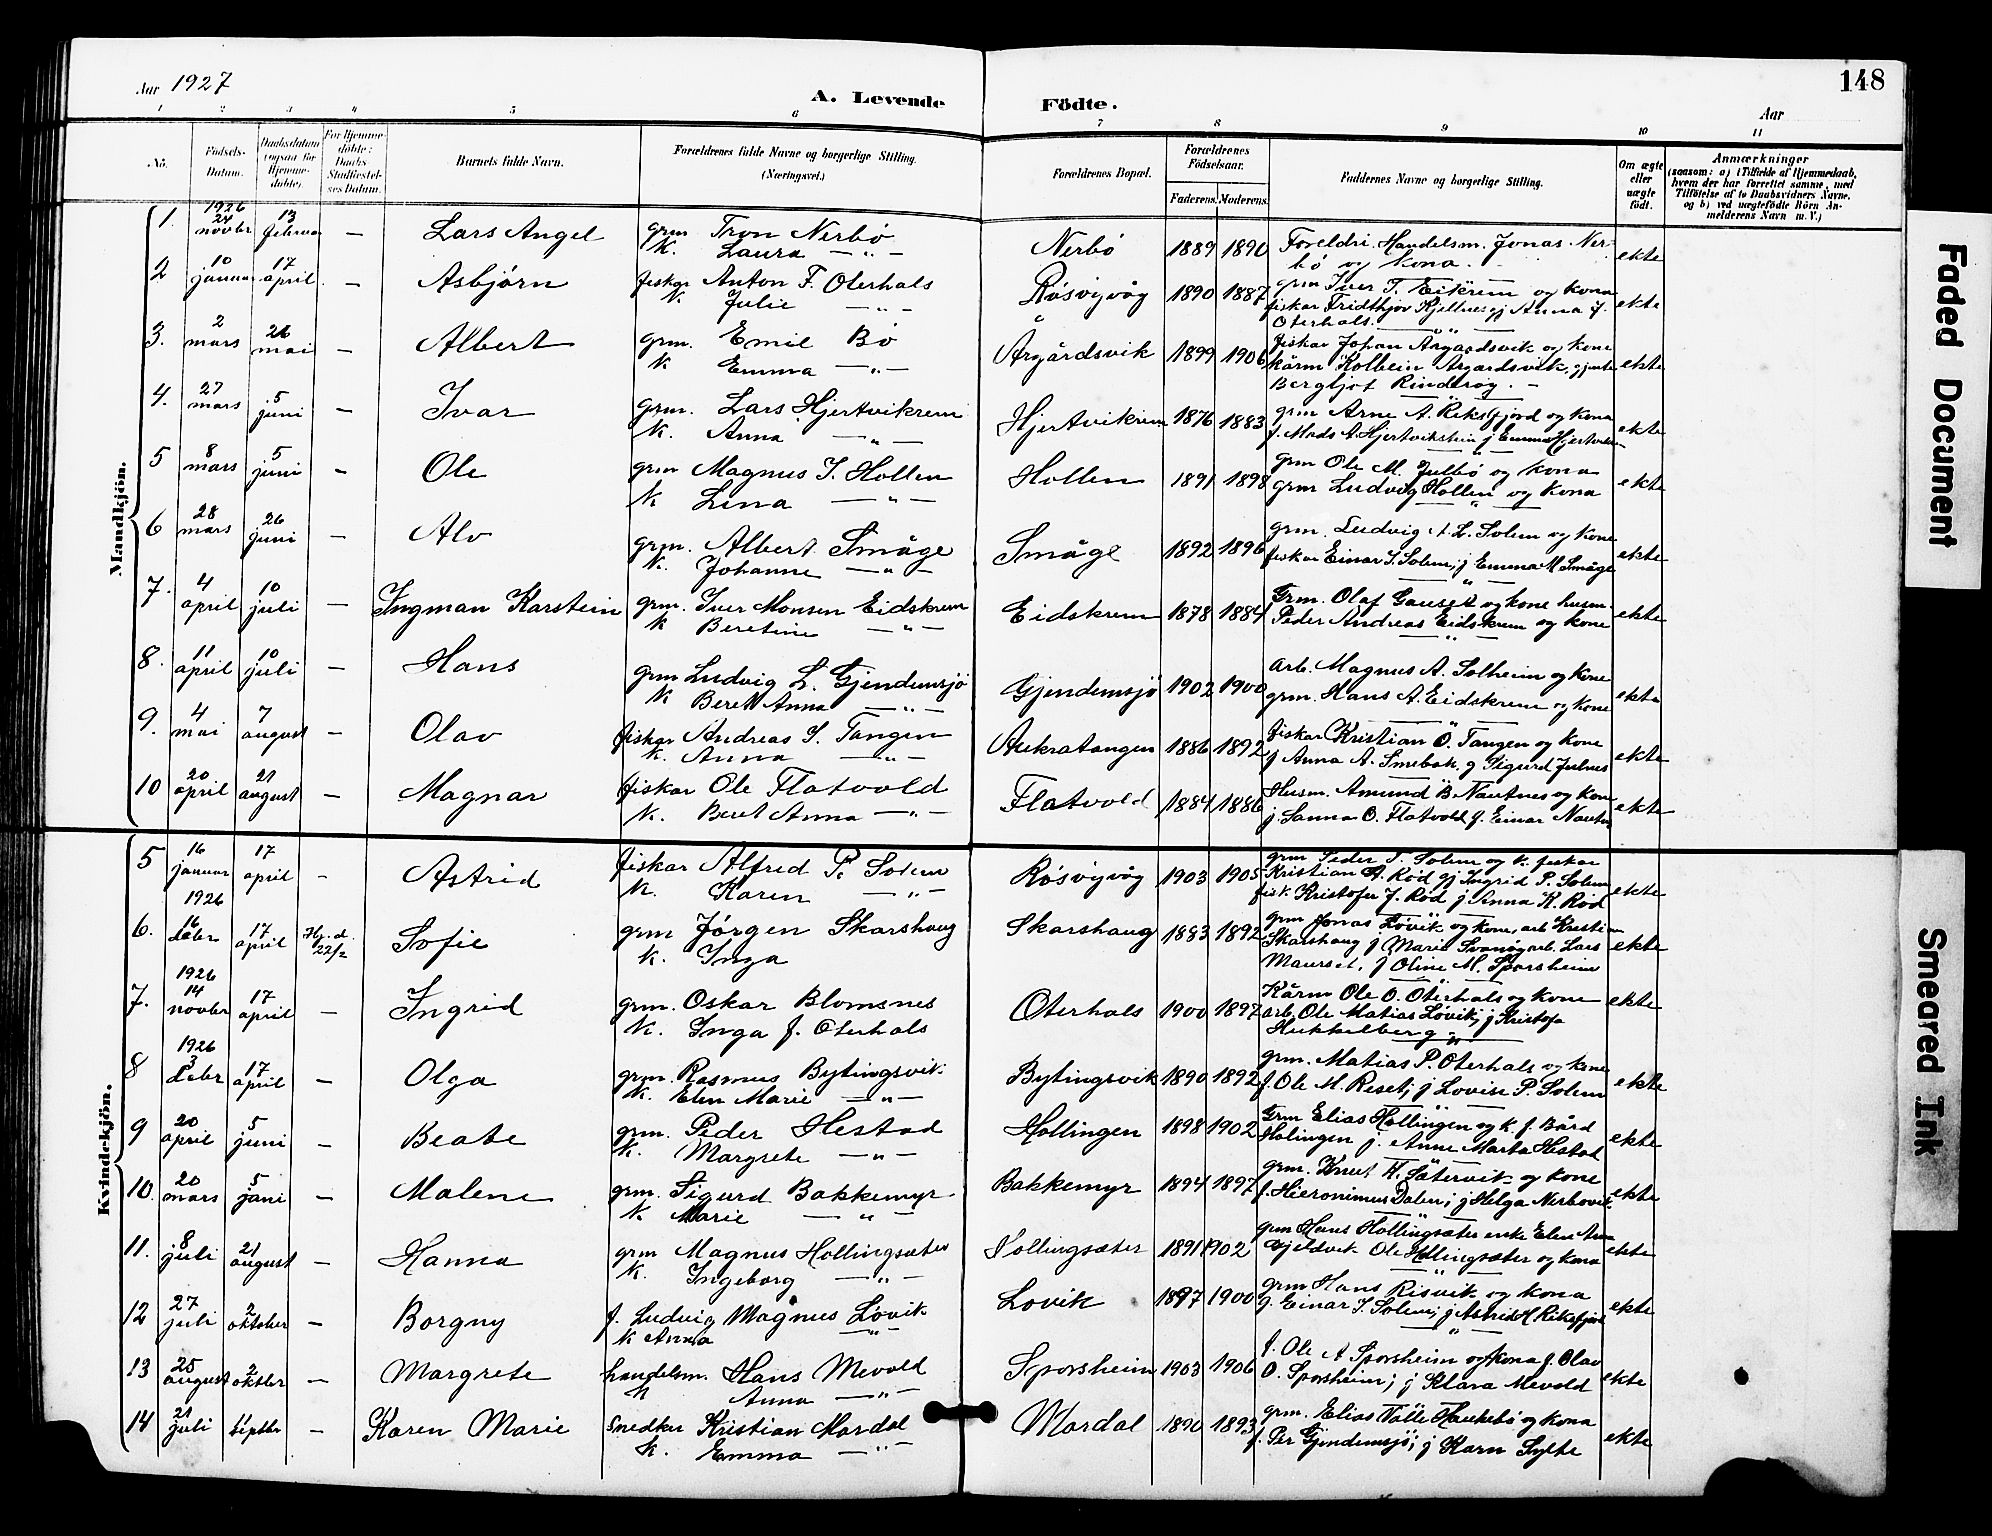 Aar 1927
A. Levende Födte.
Aar
148
1 2 3 4 5 6 7 8 9 10 11
No.
Födsels-Datum.
Daabsdatum (ogsaa for Hjemme-døbte).
For Hjemme-döbte: Daabs-Stadfæstel-ses Datum.
Barnets fulde Navn.
Forældrenes fulde Navne og borgerlige Stilling.
(Næringsvei.)
Forældrenes Bopæl.
Forældrenes Födselsaar.
Faderens. Moderens.
Faddernes Navne og borgerlige Stilling.
Om ægte eller uægte födt.
Anmærkninger
(saasom: a) i Tilfælde af Hjemmedaab,
hvem der har forrettet samme, med
Tilföielse af to Daabsvidners Navne,
og b) ved uægtefödte Börn An-
melderens Navn m. V.)
Mandkjön.
1. 1926 24 novbr 13 februar — Lars Angel grm Tron Nerbø Nerbø 1889 1890 Foreldri Handelsm. Jonas Ner- ekte
K. Laura —„— bø og kona.
2 10 januar 17 april — Asbjørn fiskar Anton F. Oterhals Røsvyvåg 1890 1887 grm Iver T. Eikrem og kona ekte
K. Julie —„— fiskar Fridthjov Kjellnes, j Anna J.
Oterhals.
3. 2 mars 26 mai — Albert grm. Emil Bø Årgårdsvik 1899 1906 fiskar Johan Årgaardsvik og kone ekte
K Emma —„— kårm Kolbein Årgardsvik, gjente
Bergljot Rindarøy. —
4. 27 mars 5 juni — Ivar grm. Lars Hjertvikrem Hjertvikrem 1876 1883 grm Arne A. Reksfjord og kona ekte
K. Anna —„— f. Mads A. Hjertvikrem j Emma Hjertvikrem
5 8 mars 5 juni — Ole grm Magnus J. Hollen Hollen 1891 1898 grm Ole M. Julbø og kona ekte
K Lina —„— grm Ludvig Hollen og kona
6 28 mars 26 juni — Alv grm. Albert Småge Småge 1892 1896 grm. Ludvig A. L. Solem og kone ekte
K. Johanne —„— fiskar Einar S. Solem, j Emma M Småge
7. 4 april 10 juli — Ingman Karstein grm. Iver Monsen Eidskrem Eidskrem 1878 1884 Grm. Olaf Gauset og kone husm. ekte
K Beretine —„— Peder Andreas Eidskrem og kone
8. 11 april 10 juli — Hans grm Ludvig L. Gjendemsjö Gjendemsjö 1902 1900 arb. Magnus A. Solheim og kone ekte
K Beret Anna —„— grm. Hans A. Eidskrem og kone
9. 4 mai 7 august — Olav fiskar Andreas S. Tangen Aukratangen 1886 1892 fiskar Kristian O. Tangen og kone ekte
K. Anna —„— j Anna A. Smebak, g Sigurd Julnes
10 20 april 21 august — Magnar fiskar Ole Flatvold Flatvold 1884 1886 Husm. Amund B. Nautnes og kone ekte
K. Beret Anna —„— j. Sanna O. Flatvold, f. Einar Nautnes
Kvindekjön.
5 16 januar 17 april — Astrid fiskar Alfred P. Solem Røsvyvåg 1903 1905 grm Peder T. Solem og k. fiskar ekte
K. Karen —„— Kristian A. Rød, gj Ingrid P. Solem
fisk. Kristofer J. Rød j Anna K. Rød
6. 1926 16 debr 17 april Hj. d. 22/2 Sofie grm Jørgen Skarshaug Skarshaug 1883 1892 grm Jonas Løvik og kone, arb Kristian ekte
K. Inga Skarshaug j Marie Svanøy arb. Lars
Maurset, j Oline M. Sporsheim
7. 1926 14 novbr 17 april — Ingrid grm. Oskar Blomsnes Oterhals 1900 1897 Kårm Ole O. Oterhals og kone ekte
K. Inga f. Oterhals arb. Ole Matias Løvik, j Kristofa
Hukkelberg
8 1926 3 debr 17 april — Olga grm. Rasmus Bytingsvik Bytingsvik 1890 1892 grm. Matias P. Oterhals og kone ekte
K. Elen Marie —„— f. Ole M. Reset; j Lovise P. Solem
9 20 april 5 juni — Beate grm. Peder Hestad Hollingen 1898 1902 Grm Elias Hollingen og k f. Bård ekte
K. Margrete —„— Holingen j. Anne Marta Hestad
10. 20 mars 5 juni — Malene grm. Sigurd Bakkemyr Bakkemyr 1894 1897 grm. Knut H. Sätervik og kone ekte
K. Marie —„— f. Hieronimus Dalen; j Helga Nerbøvik
11. 8 juli 21 august — Hanna grm Magnus Hollingsæter Hollingsæter 1891 1902 grm Hans Hollingsæter enke Elen Anna ekte
K. Ingeborg —„— Gjeldvik Ole Hollingsæter og kona
12 27 juli 2 oktober — Borgny f. Ludvig Magnus Løvik Lovik 1897 1900 grm Hans Risvik og kona ekte
K Anna —„— g. Einar S. Solem; j Astrid H Riksfjord
13 25 august 2 oktber — Margrete handelsm. Hans Mevold Sporsheim 1903 1906 f. Ole A Sporsheim og kona f. Olav ekte
K Anna —„— O. Sporsheim; j Klara Mevold
14 21 juli 11 septbr — Karen Marie Snedker Kristian Mordal Mordal 1890 1893 grm. Elias Tälle Haukebø og kona ekte
K. Emma —„— f. Per Gjendemsjö; j Karn Sylte
Faded Document
Smeared Ink